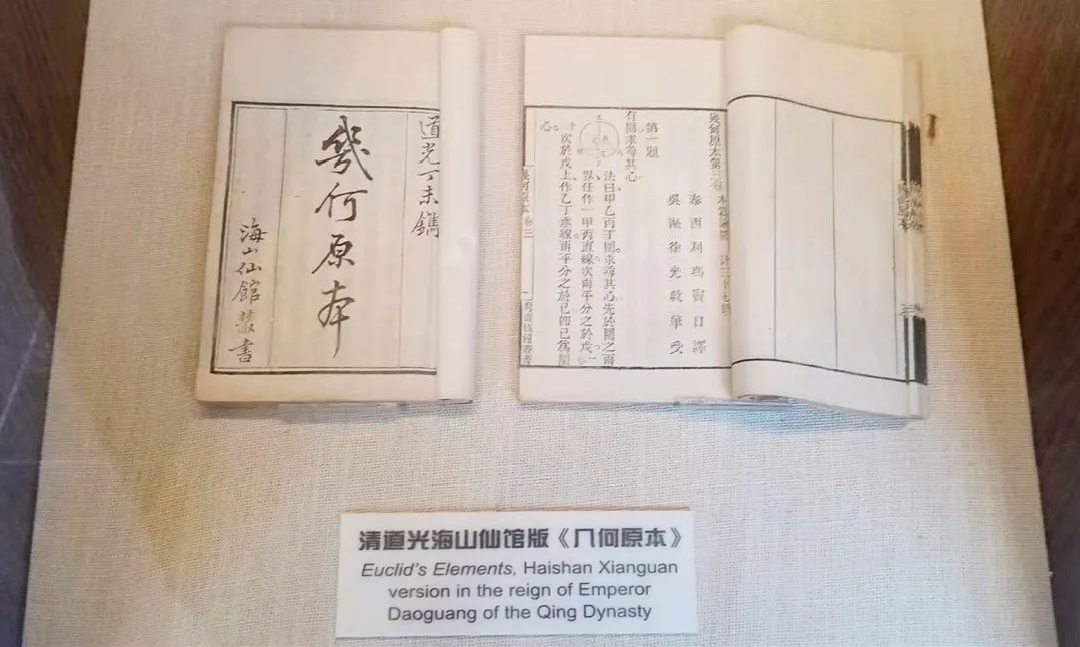 道光丁未鐫
幾何原本
海山仙館叢書
幾何原本第三卷 本篇論圜 計三十七題
泰西利瑪竇口譯
吳淞徐光啟筆受
第一題
有圜求尋其心
法曰甲乙丙丁圜求尋其心先於圜之兩
界任作一甲丙直線次兩平分之於戊一
十次於戊上作乙丁垂線兩平分之於己即己爲圜
心
幾何原本 卷三 一 海山仙館叢書
清道光海山仙馆版《几何原本》
Euclid's Elements, Haishan Xianguan
version in the reign of Emperor
Daoguang of the Qing Dynasty